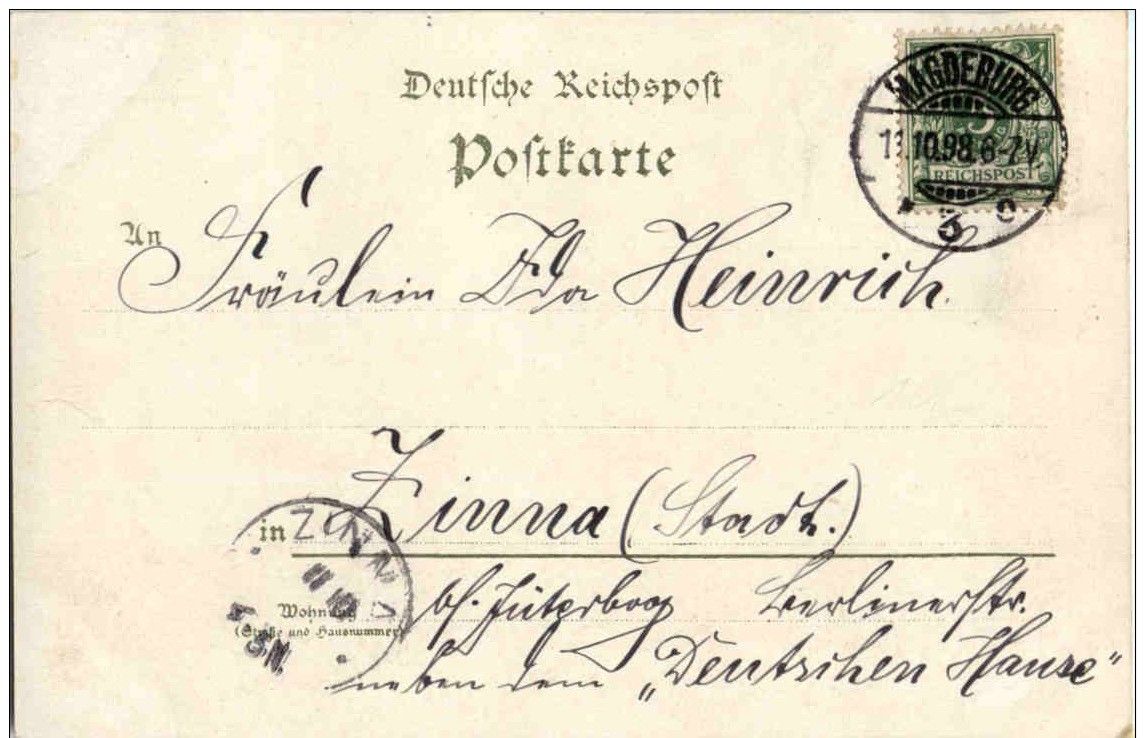 Deutsche Reichspost
Postkarte
MAGDEBURG
11.10.98.6-7V.
REICHSPOST
* 3 c
An Fräulein Ida Heinrich.
in Zinna (Stadt.)
ZINNA
Wohnung
(Straße und Hausnummer)
b/. Jüterbog Berlinerstr.
neben dem „Deutschen Hause"